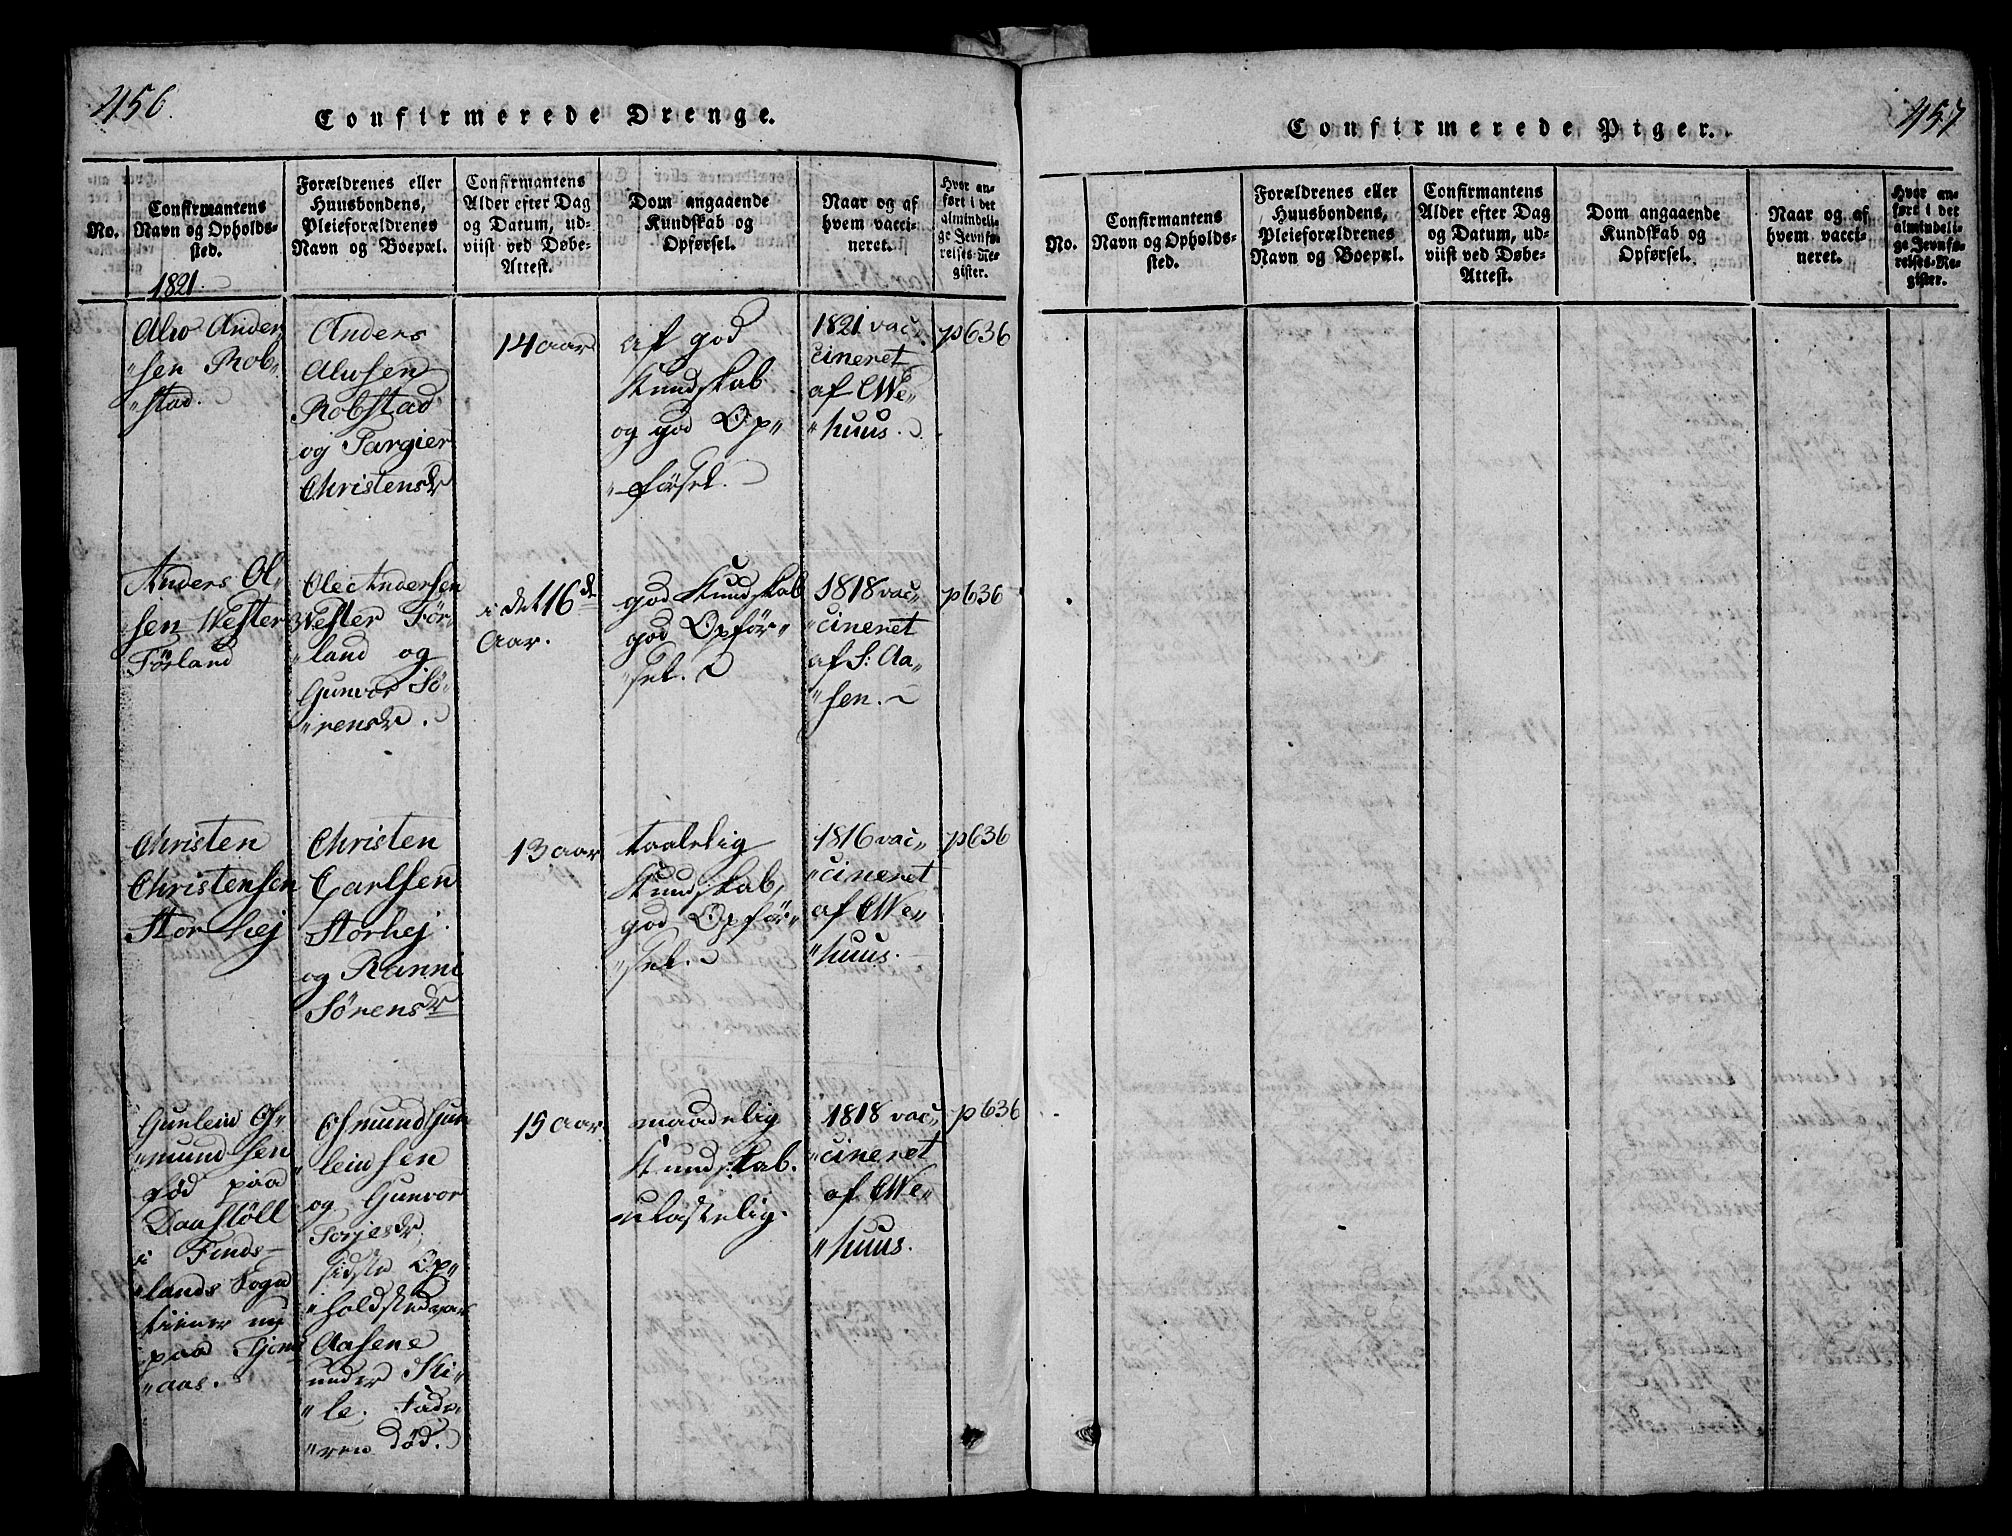 456.
Confirmerede Drenge.
No.
Confirmantens
Navn og Opholds-
sted.
1821.
Forældrenes eller
Huusbondens,
Pleieforældrenes
Navn og Boepæl.
Confirmantens
Alder efter Dag
og Datum, ud-
viist ved Døbe-
Attest.
Dom angaaende
Kundskab og
Opførsel.
Naar og af
hvem vacci-
neret.
Hvor an-
ført i det
almindeli-
ge Jevnfø-
relses-Re-
gister.
Alw Ander„
„sen Rob„
„stad.
Anders
Alwsen
Robstad
og Targier
Christensdr
14 aar
af god
Kundskab
og god Op„
„førsel.
1821 vac„
cineret
af C We„
„huus.
p636
Anders Ol„
„sen Wester
Førland
Ole Andersen
Wester Før„
„land og
Gunvor Sö„
„rensdr.
i det 16de
Aar.
god Kundskab
god Opför„
„sel.
1818 vac„
„cineret
af S: Aa„
„sen.
p636
Christen
Christensen
Storhej
Christen
Carlsen
Storhej
og Ranni
Sörensdr
13 aar
taalelig
Kundskab,
god Opför„
„sel.
1816 vac„
„cineret
af C We„
„huus.
p636
Gunleiv Os„
„mundsen
fød paa
Daastöll
i Finds-
„lands Sogn
tiener nu
paa Hjem
„aas.
Osmund Gun
„leivsen
og Gunvor
Torjesdr,
sidste Op„
„holdsted var
Aasene
under Ki„
„le. Fade„
„ren död.
15 Aar.
maadelig
Kundskab.
ulastelig.
1818 vac„
„cineret
af C We„
„huus.
p636
457
Confirmerede Piger.
No.
Confirmantens
Navn og Opholds-
sted.
Forældrenes eller
Huusbondens,
Pleieforældrenes
Navn og Boepæl.
Confirmantens
Alder efter Dag
og Datum, ud-
viist ved Døbe-
Attest.
Dom angaaende
Kundskab og
Opførsel.
Naar og af
hvem vacci-
neret.
Hvor an-
ført i det
almindeli-
ge Jevnfø-
relses-Re-
gister.